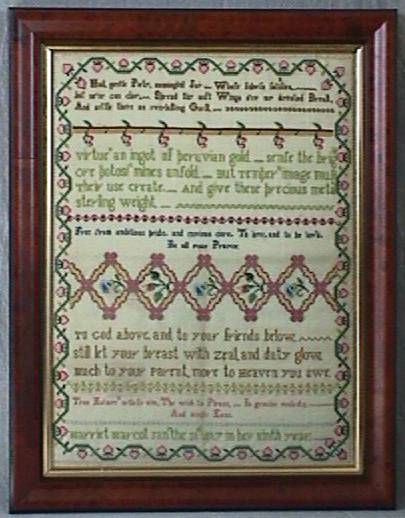 Hail, gentle Pow'r, unmingled Joy
but never can cloy, Spread thy soft Wings o'er my devoted Breast,
And settle there an everlasting Guest,
Virtue's an ingot of peruvian gold sense the brig
ore potosi mines unfold but temper image mu
their use create And give these precious meta
sterling weight
Free from ambitious pride, and envious care, To love, and to be lov'd,
Be all your Prayer
To God above, and to your friends below
still let your breast with zeal and duty glow
much to your parent, more to heaven you owe
True Nature's aim, The wish to Please, In genuine modesty,
And simple Ease
Harriet Marcot May in her ninth year